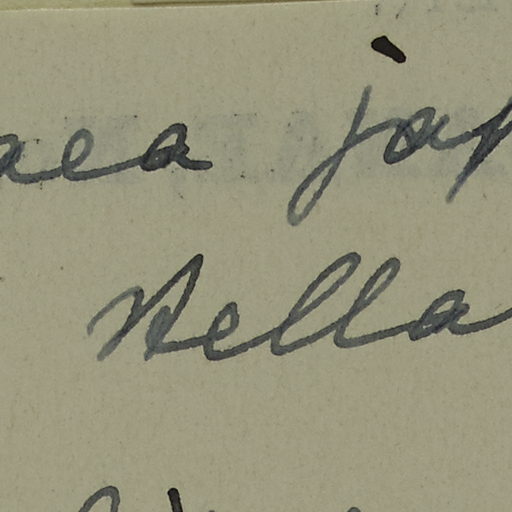 aea jap
stella